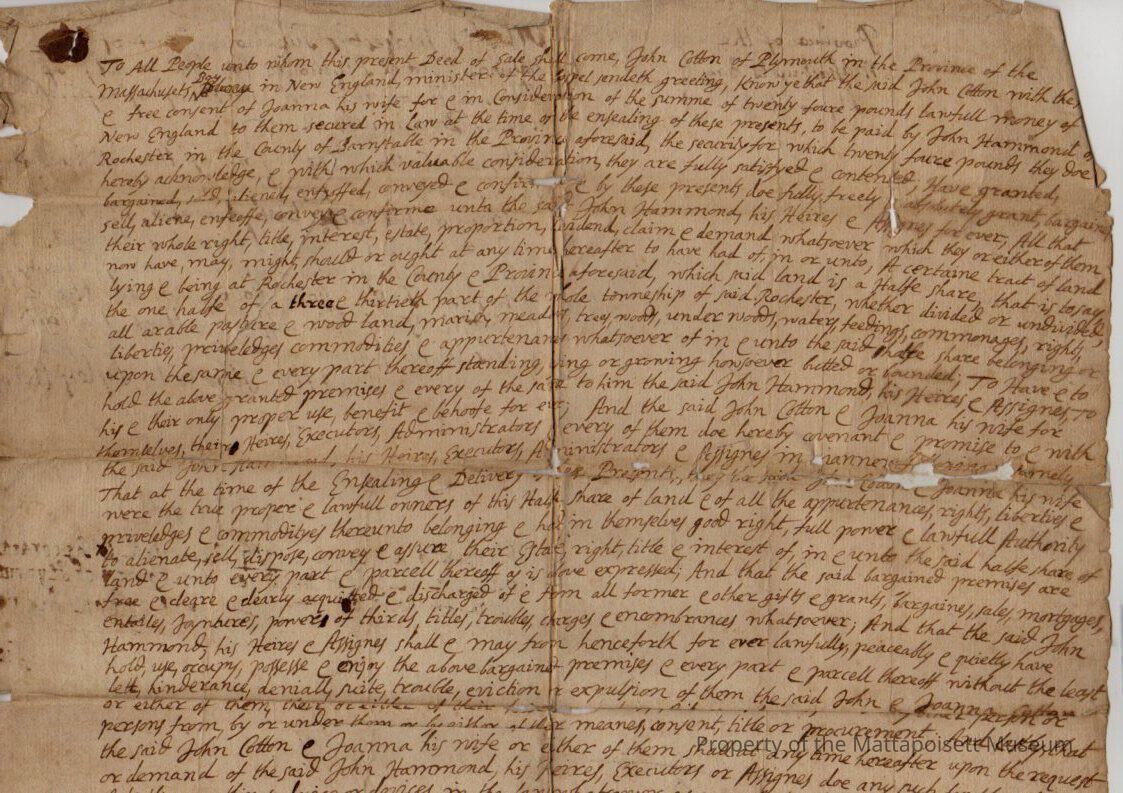 To All People unto whom this present Deed of Sale shall come, John Cotton of Plymouth in the Province of the
Massachusets Bay in New England, minister of the Gospel sendeth greeting, Know ye that the said John Cotton with the
& free consent of Joanna his wife for & in Consideration of the summe of twenty foure pounds lawfull money of
New England to them secured in Law at the time of the ensealing of these presents, to be paid by John Hammond of
Rochester in the County of Barnstable in the Province aforesaid, the security for which twenty foure pounds they doe
hereby acknowledge, & with which valuable consideration, they are fully satisfyed & contented, Have granted,
bargained, sold, aliened, enfeoffed, conveyed & confirmed & by these presents doe fully, freely & absolutely grant, bargaine
sell, aliene, enfeoffe, convey & confirme unto the said John Hammond, his Heires & Assignes for ever, All that
their whole right, title, interest, estate, proportion, dividend, claim & demand whatsoever which they or either of them
now have, may, might, should or ought at any time hereafter to have had of, in or unto A certaine tract of land
lying & being at Rochester in the County & Province aforesaid, which said land is a Halfe share, that is to say,
the one halfe of a three & thirtieth part of the whole towneship of said Rochester, whether divided or undivided,
all arable pasture & wood land, marish, meadow, trey, woods, under woods, waters, feedings, commonages, rights,
liberties, priveledges commodities & appurtenances whatsoever of in & unto the said halfe share belonging or
upon the same & every part thereoff standing, lying or growing howsoever butted or bounded; To Have & to
hold the above granted premises & every of the same to him the said John Hammond, his Heires & Assignes, To
his & their only proper use, benefit & behoofe for ever; And the said John Cotton & Joanna his wife for
themselves, their Heires, Executors, Administrators & every of them doe hereby covenant & promise to & with
the said John Hammond, his Heires, Executors, Administrators & Assignes in manner following namely
That at the time of the Ensealing & Delivery of these Presents, they the said John Cotton & Joanna his wife
were the true proper & lawfull owners of this Halfe share of land & of all the appertenances, rights, liberties &
priveledges & commodityes thereunto belonging & had in themselves good right, full power & lawfull Authority
to alienate, sell, dispose, convey & assure their Estate, right, title & interest of, in & unto the said halfe share of
land & unto every part & parcell thereoff as is above expressed; And that the said bargained premises are
free & cleare & clearly acquitted & discharged of & from all former & other gifts & grants, bargaines, sales, mortgages,
entailes, Joyntures, powers of thirds, titles, troubles, charges & encombrances whatsoever; And that the said John
Hammond, his Heires & Assignes shall & may from henceforth for ever lawfully, peaceably & quietly have
hold, use, occupy, possesse & enjoy the above bargained premises & every part & parcell thereoff without the least
lett, hinderance, deniall, suite, trouble, eviction or expulsion of them the said John & Joanna Cotton
or either of them, their or either of their person or
persons from, by or under them or by either of their meanes, consent, title or procurement. And that
the said John Cotton & Joanna his wife or either of them shall at any time hereafter upon the request
or demand of the said John Hammond, his Heires, Executors or Assignes doe any such
Property of the Mattapoisett Museum